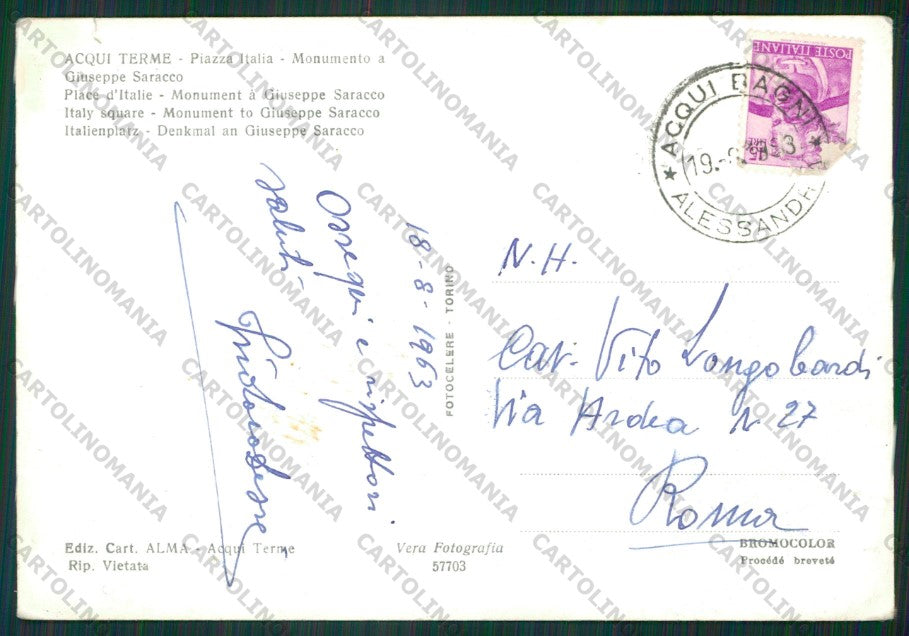 ACQUI TERME - Piazza Italia - Monumento a
Giuseppe Saracco
Place d'Italie - Monument à Giuseppe Saracco
Italy square - Monument to Giuseppe Saracco
Italienplatz - Denkmal an Giuseppe Saracco
POSTE ITALIANE
ACQUI BAGNI
ALESSANDR
18-8-1963
Ossequi e rispettosi
saluti
N.H.
Cav. Vito Longobardi
Via Ardea N 27
Roma
FOTOCELERE - TORINO
Ediz. Cart. ALMA - Acqui Terme
Rip. Vietata
Vera Fotografia
57703
BROMOCOLOR
Procédé breveté
CARTOLINOMANIA